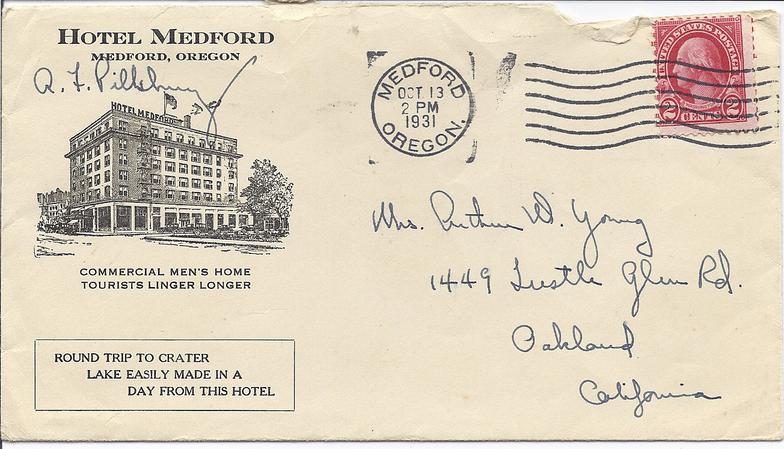 HOTEL MEDFORD
MEDFORD, OREGON
A. F. Pillsbury
HOTEL MEDFORD
COMMERCIAL MEN'S HOME
TOURISTS LINGER LONGER
ROUND TRIP TO CRATER
LAKE EASILY MADE IN A
DAY FROM THIS HOTEL
MEDFORD
OCT 13
2 PM
1931
OREGON.
UNITED STATES POSTAGE
2 CENTS 2
Mrs. Arthur W. Young
1449 Trestle Glen Rd.
Oakland
California